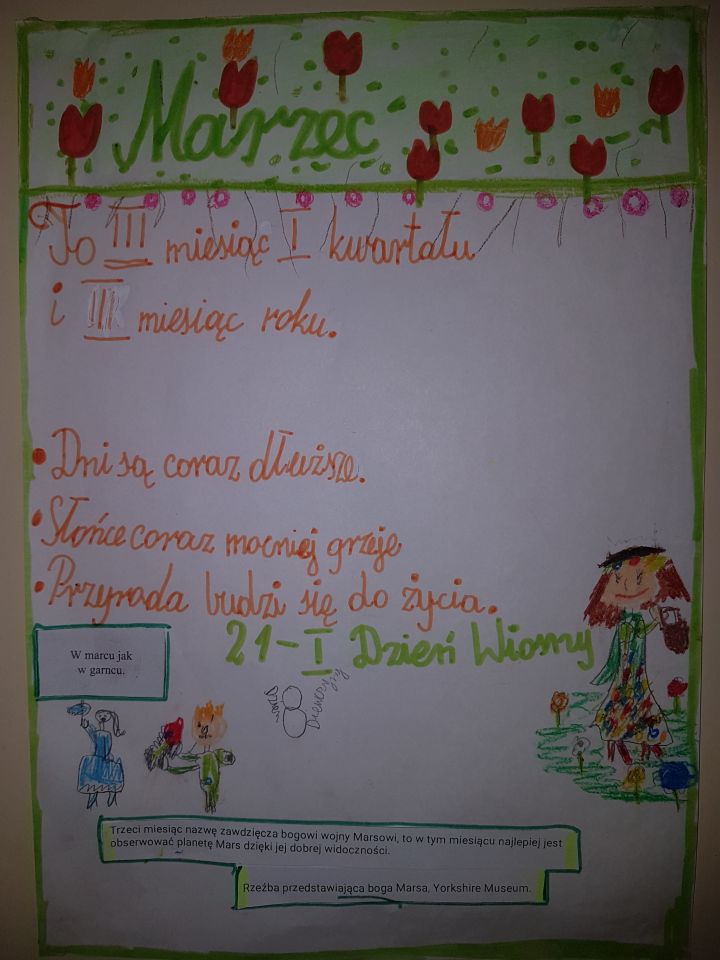 Marzec
To III miesiąc I kwartału
i III miesiąc roku.
• Dni są coraz dłuższe.
• Słońce coraz mocniej grzeje
• Przyroda budzi się do życia.
21-I Dzień Wiosny
W marcu jak
w garncu.
8
Trzeci miesiąc nazwę zawdzięcza bogowi wojny Marsowi, to w tym miesiącu najlepiej jest
obserwować planetę Mars dzięki jej dobrej widoczności.
Rzeźba przedstawiająca boga Marsa, Yorkshire Museum.